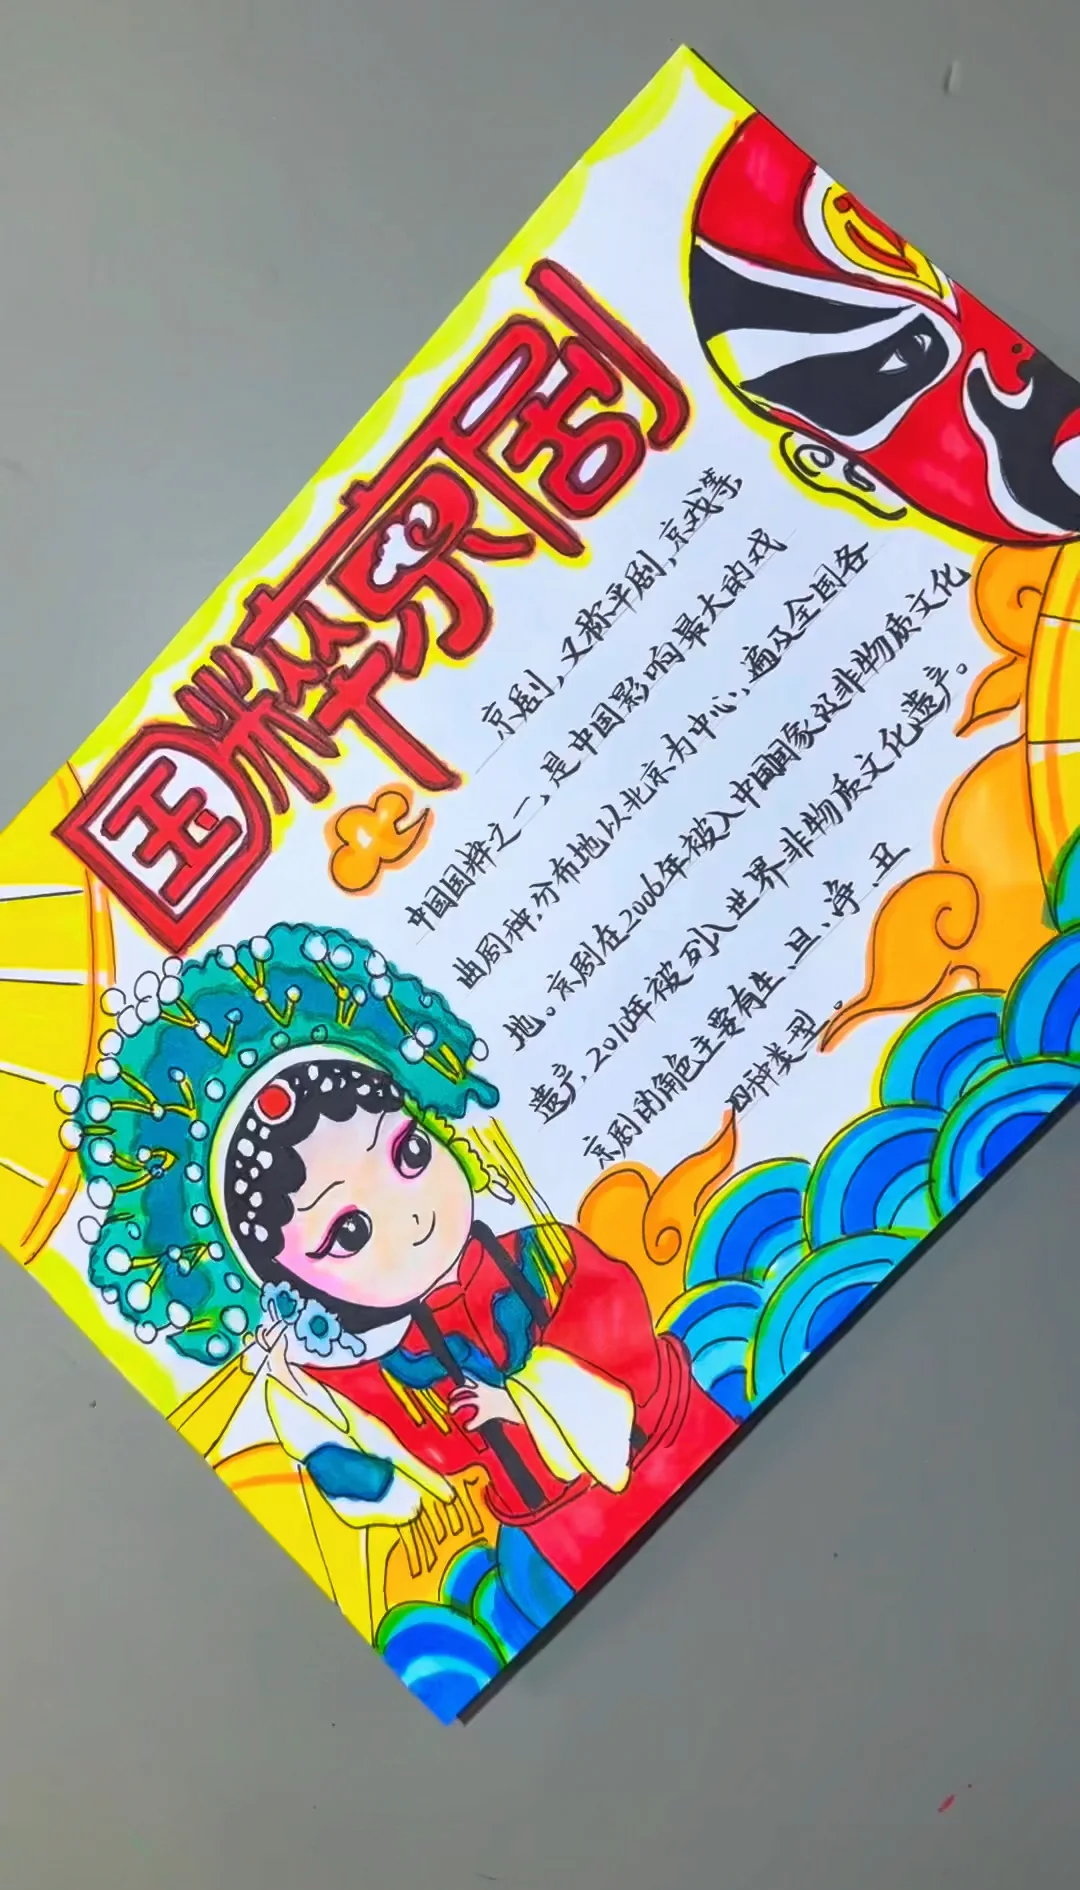 国粹京剧
京剧，又称平剧，京戏等
中国国粹之一，是中国影响最大的戏
曲剧种，分布地以北京为中心，遍及全国各
地。京剧在2006年被入中国国家级非物质文化
遗产，2010年被列入世界非物质文化遗产。
京剧的角色主要有生、旦、净、丑
四种类型。